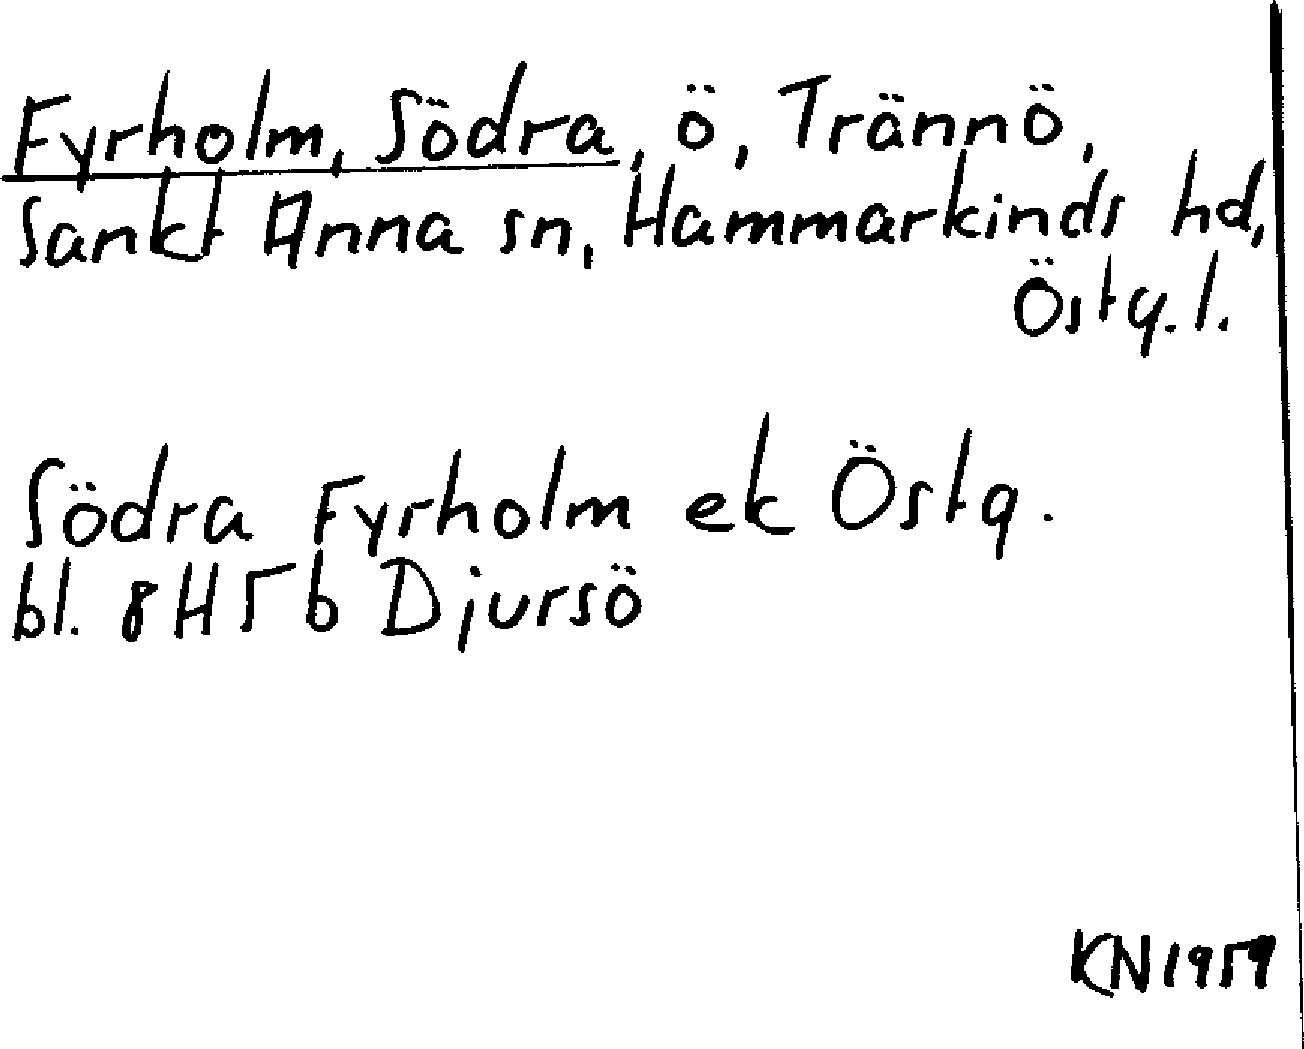 Fyrholm, Södra, ö, Trännö,
Sankt Anna sn, Hammarkinds hd,
Östg. l.
Södra Fyrholm ek Östg.
bl. 8H5b Djursö
KN1959